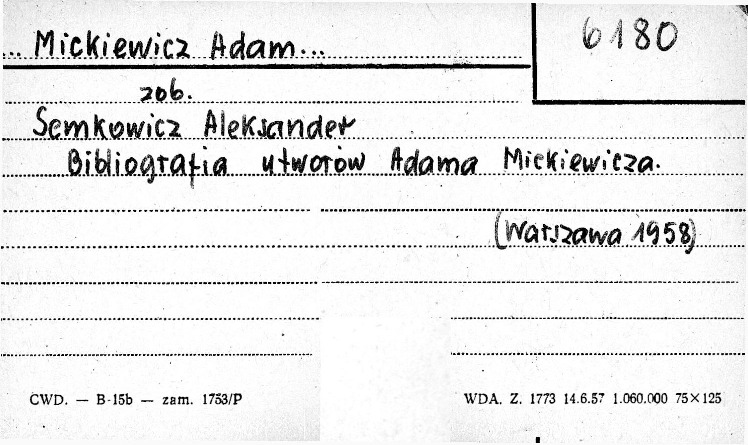 ... Mickiewicz Adam...
6180
zob.
Semkowicz Aleksander
Bibliografia utworów Adama Mickiewicza.
(Warszawa 1958)
CWD. — B-15b — zam. 1753/P
WDA. Z. 1773 14.6.57 1.060.000 75×125